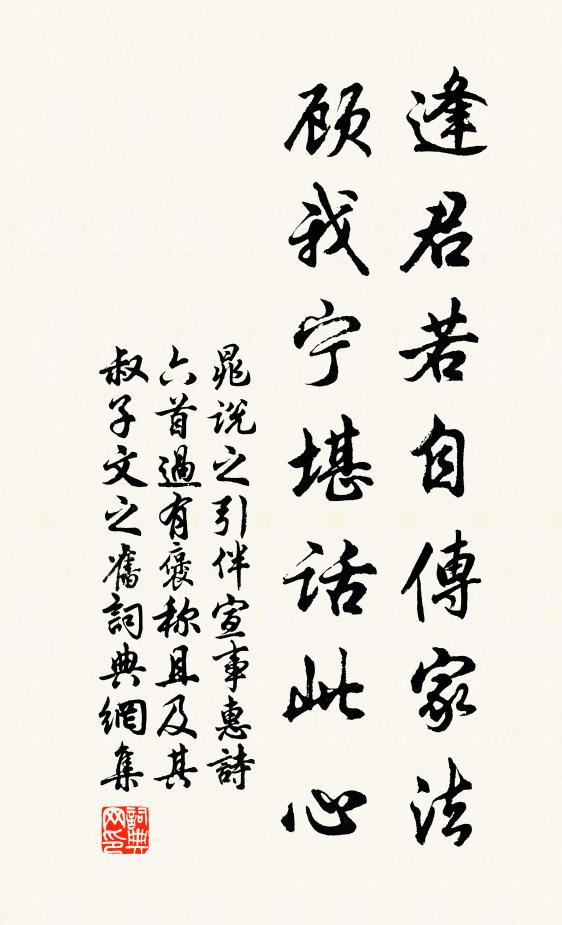 逢君若自傳家法
顾我宁堪话此心
晁说之引伴宣事惠詩
六首過有褒称且及其
叔子文之舊詞典網集
詞典网印